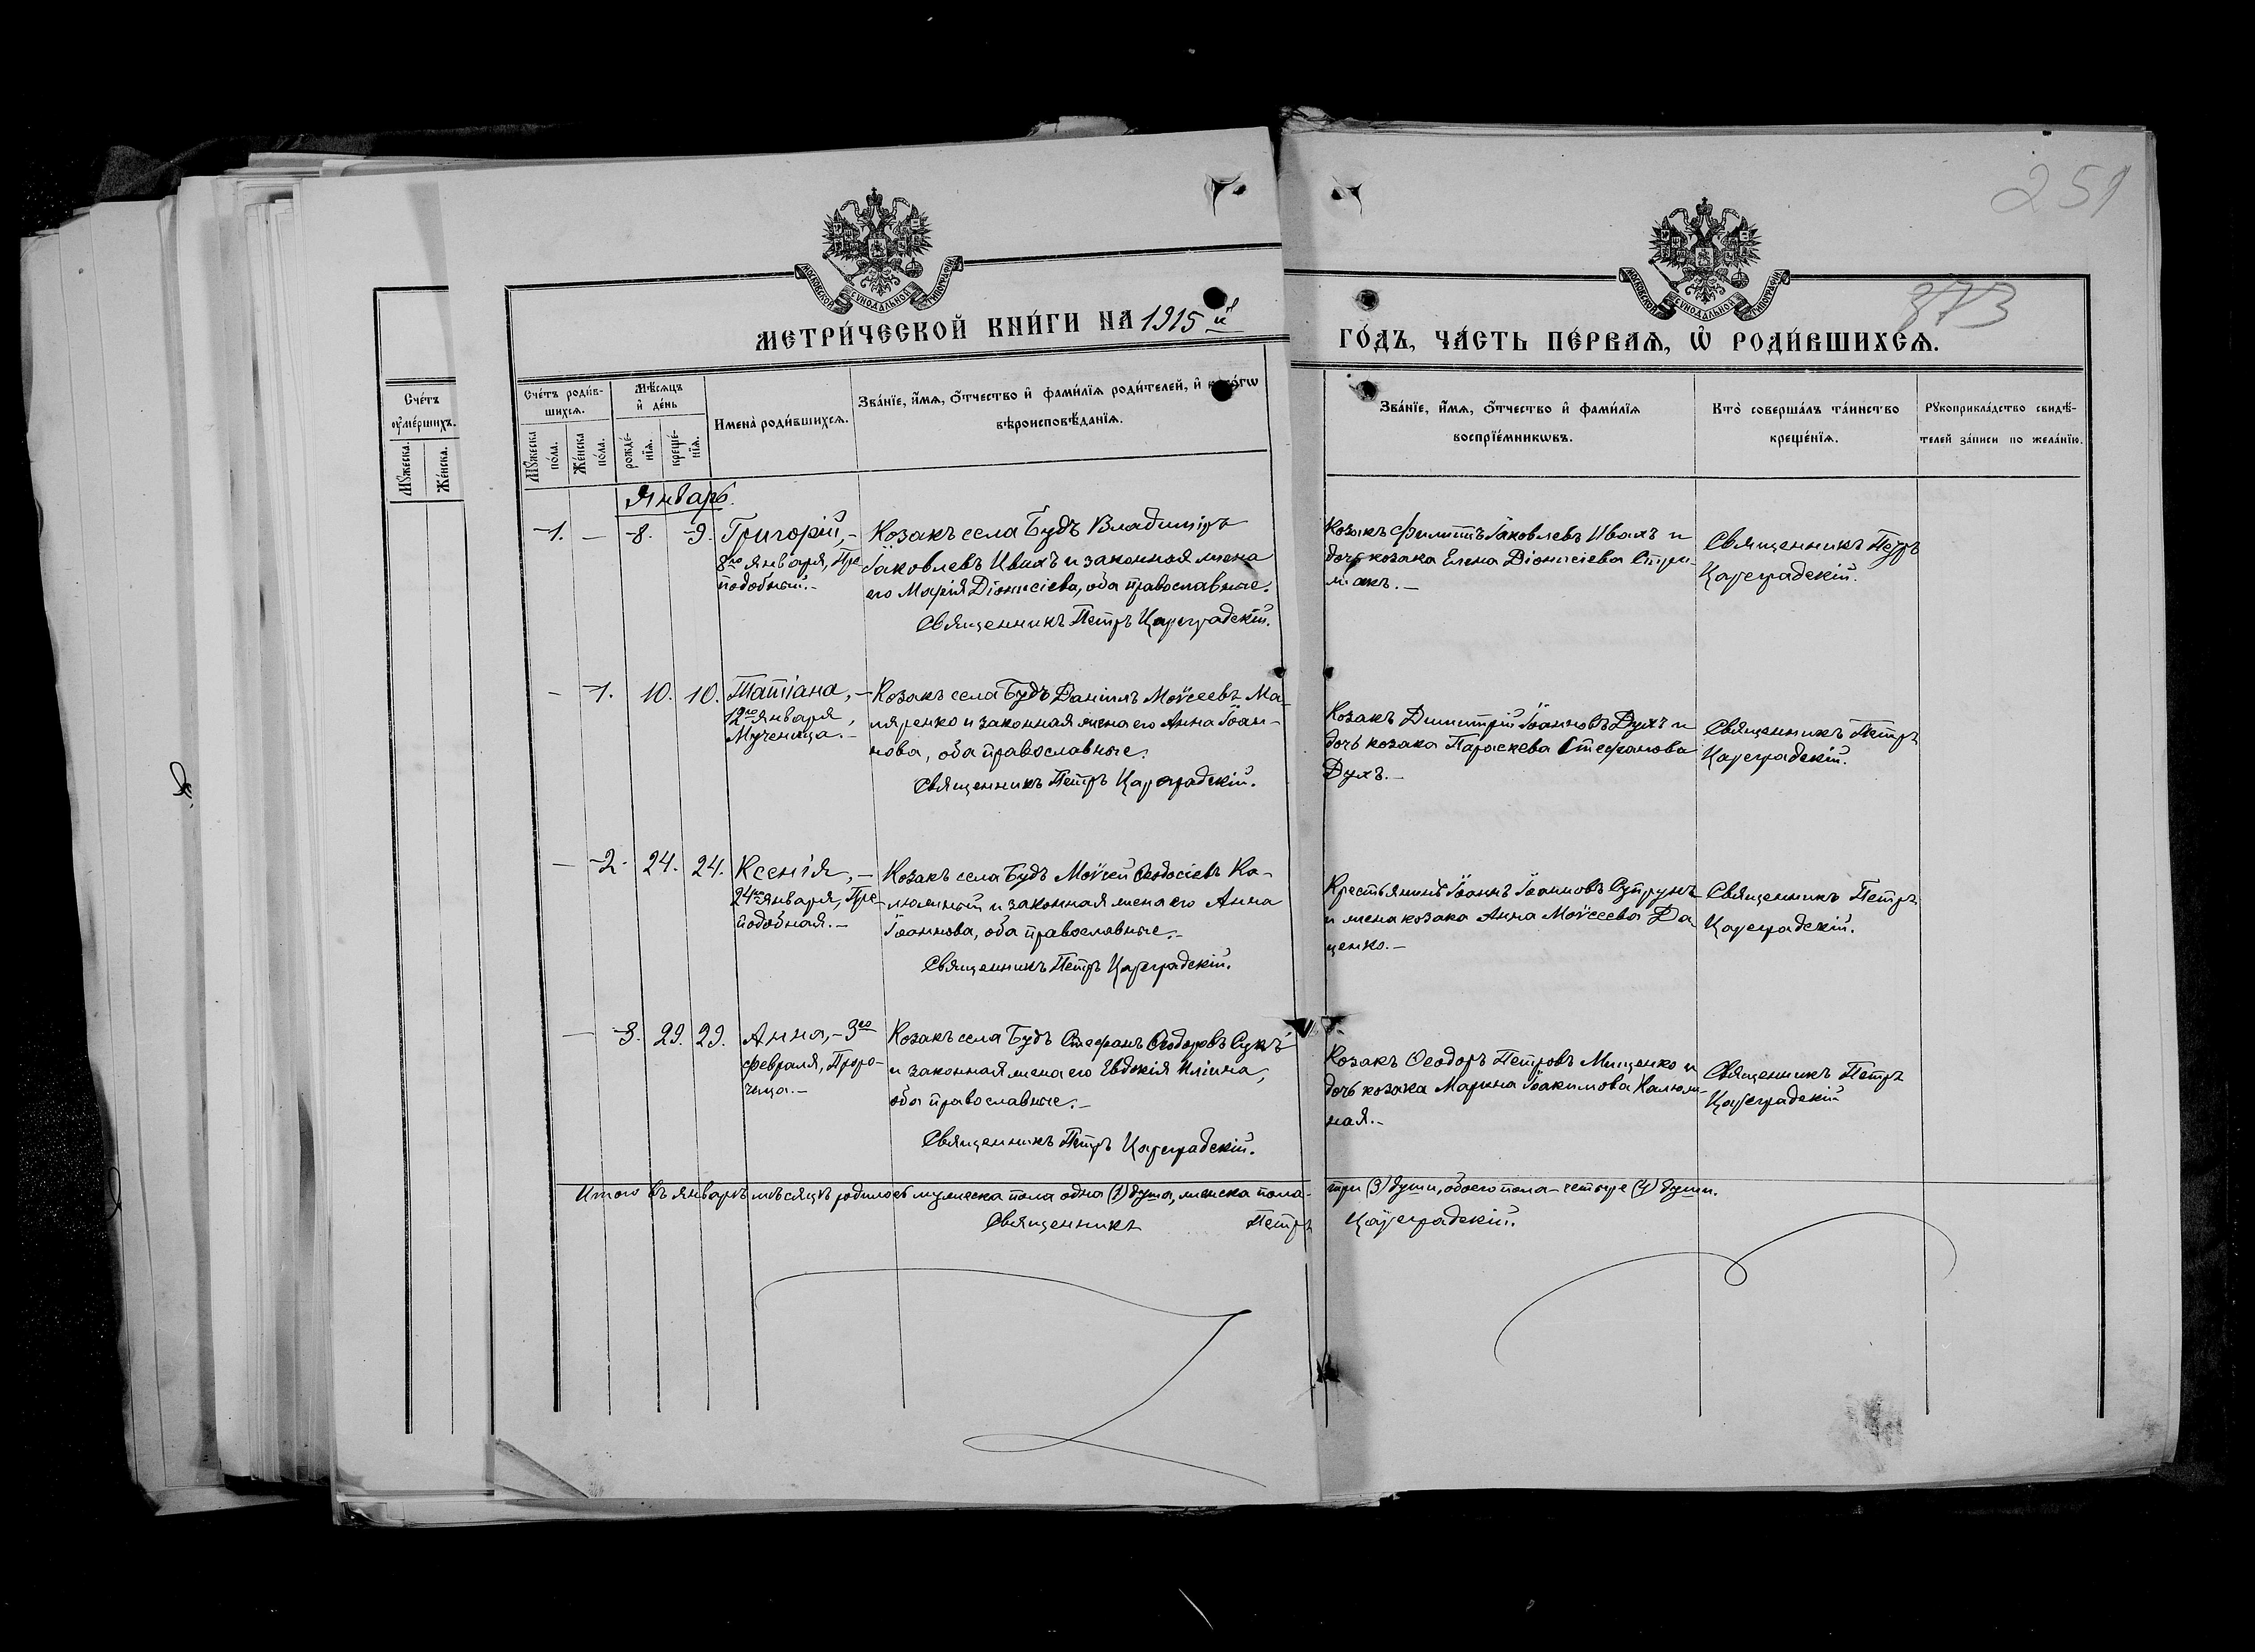 251
373
МОСКОВСКОЙ СѴНОДАЛЬНОЙ ТИПОГРАФІИ
МОСКОВСКОЙ СѴНОДАЛЬНОЙ ТИПОГРАФІИ
МЕТРИ́ЧЕСКОЙ КНИ́ГИ НА 1915й
ГО́ДЪ, ЧА́СТЬ ПЕ́РВАЯ, Ѡ҆ РОДИ́ВШИХСЯ.
Сче́тъ
ᲂу҆ме́ршихъ.
Мꙋжеска.
Же́нска.
Сче́тъ роди́в-
шихся.
Мꙋжеска
по́ла.
Же́нска
по́ла.
Мѣ́сяцъ
и҆ де́нь
рожде́-
нїя.
креще́-
нїя.
Имена̀ роди́вшихся.
Зва́нїе, и҆́мя, ѻ҆́тчество и҆ фами́лїя роди́телей, и҆ како́гѡ
вѣроисповѣ́данїя.
Зва́нїе, и҆́мя, ѻ҆́тчество и҆ фами́лїя
воспрїе́мникѡвъ.
Кто̀ соверша́лъ та́инство
креще́нїя.
Рꙋкоприкла́дство свидѣ́-
телей за́писи по жела́нїю.
Январь.
1. – 8. 9. Григорій, –
8го Января, Пре-
подобный. –
Козакъ села Будъ Владиміръ
Іаковлевъ Ивахъ и законная жена
его Марія Діонисіева, оба православные.
Священникъ Петръ Цареградскій.
Козакъ Филиппъ Іаковлевъ Ивахъ и
дочь козака Елена Діонисіева Стри-
жакъ. –
Священникъ Петръ
Цареградскій.
– 1. 10. 10. Татіана, –
12го Января,
Мученица. –
Козакъ села Будъ Даніилъ Моѵсеевъ Ма-
ляренко и законная жена его Анна Іоан-
нова, оба православные.
Священникъ Петръ Цареградскій.
Козакъ Димитрій Іоанновъ Духъ и
дочь козака Параскева Стефанова
Духъ. –
Священникъ Петръ
Цареградскій.
– 2. 24. 24. Ксенія, –
24го Января, Пре-
подобная. –
Козакъ села Будъ Моѵсей Ѳеодосіевъ Ка-
люжный и законная жена его Анна
Іоаннова, оба православные. –
Священникъ Петръ Цареградскій.
Крестьянинъ Іоаннъ Іоанновъ Супрунъ
и жена козака Анна Моѵсеева Да-
ценко. –
Священникъ Петръ
Цареградскій.
– 3. 29. 29. Анна, – 3го
февраля, Проро-
чица. –
Козакъ села Будъ Стефанъ Ѳеодоровъ Сукъ
и законная жена его Евдокія Иліина,
оба православные. –
Священникъ Петръ Цареградскій.
Козакъ Ѳеодоръ Петровъ Мищенко и
дочь козака Марина Іоакимова Калюж-
ная. –
Священникъ Петръ
Цареградскій
Итого въ Январѣ мѣсяцѣ родилось мужеска пола одна (1) душа, женска пола – три (3) души, обоего пола – четыре (4) души.
Священникъ Петръ Цареградскій.